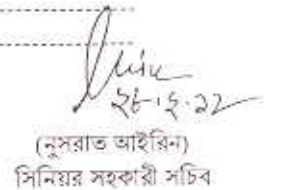 ২৮.২.১২
(নুসরাত আইরিন)
সিনিয়র সহকারী সচিব